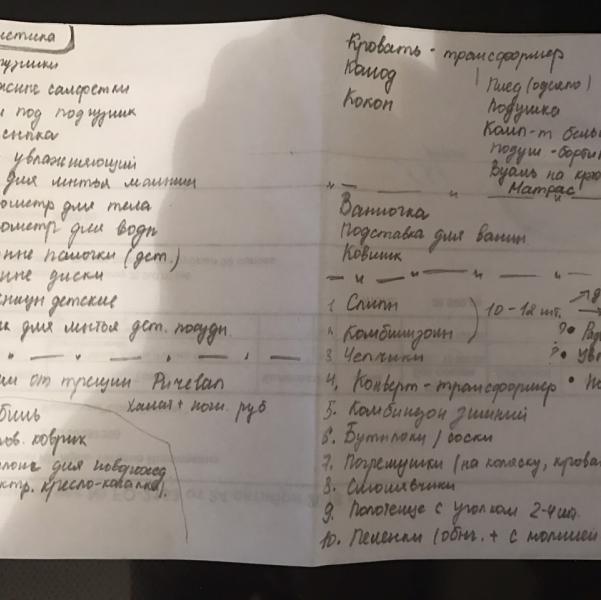 стика
гузники
жные салфетки
под подгузник
сыпка
увлажняющий
для мытья малыш
ометр для тела
ометр для воды
ные палочки (дет.)
ные диски
ницы детские
для мытья дет. посуды
— " — " — " —
от трещин Purelan
Халат + ночн. руб
биль
ов. коврик
для новорожд
ктр. кресло-качалка
Кровать - трансформер
Комод
Кокон
Плед (одеяло)
Подушка
Комп-т бель
подуш - борти
Вуаль на кро
Матрас
" — " — " — "
Ванночка
Подставка для ванны
Коврик
— " — " — " — " —
1 Слипы
2. Комбинизоны
10-12 шт.
3. Чепчики
? •
? •
4. Конверт - трансформер •
5. Комбинзон зимний
6. Бутылочки / соски
7. Погремушки (на коляску, крова
8. Слюнявчики
9. Полотенце с уголком 2-4 шт.
10. Пеленки (обыч. + с молнией